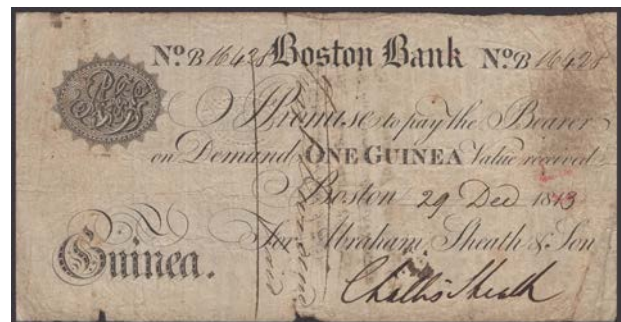 No. B 16428 Boston Bank No. B 16428
I Promise to pay the Bearer
on Demand ONE GUINEA Value received
Boston 29 Dec 1813
For Abraham, Sheath & Son
Guinea.
Challis Sheath